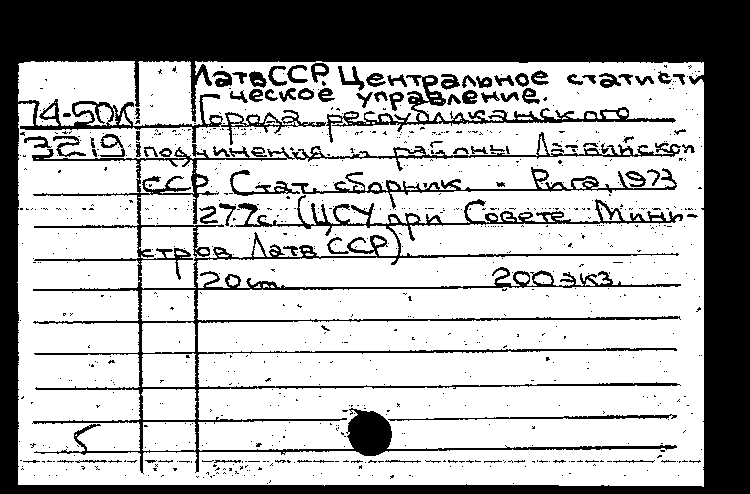 ЛатвССР. Центральное статисти
ческое управление.
74-50К Города республиканского
3219 подчинения и районы Латвийской
ССР. Стат. сборник. - Рига, 1973
277с. (ЦСУ при Совете Мини-
стров Латв ССР).
20см. 200 экз.